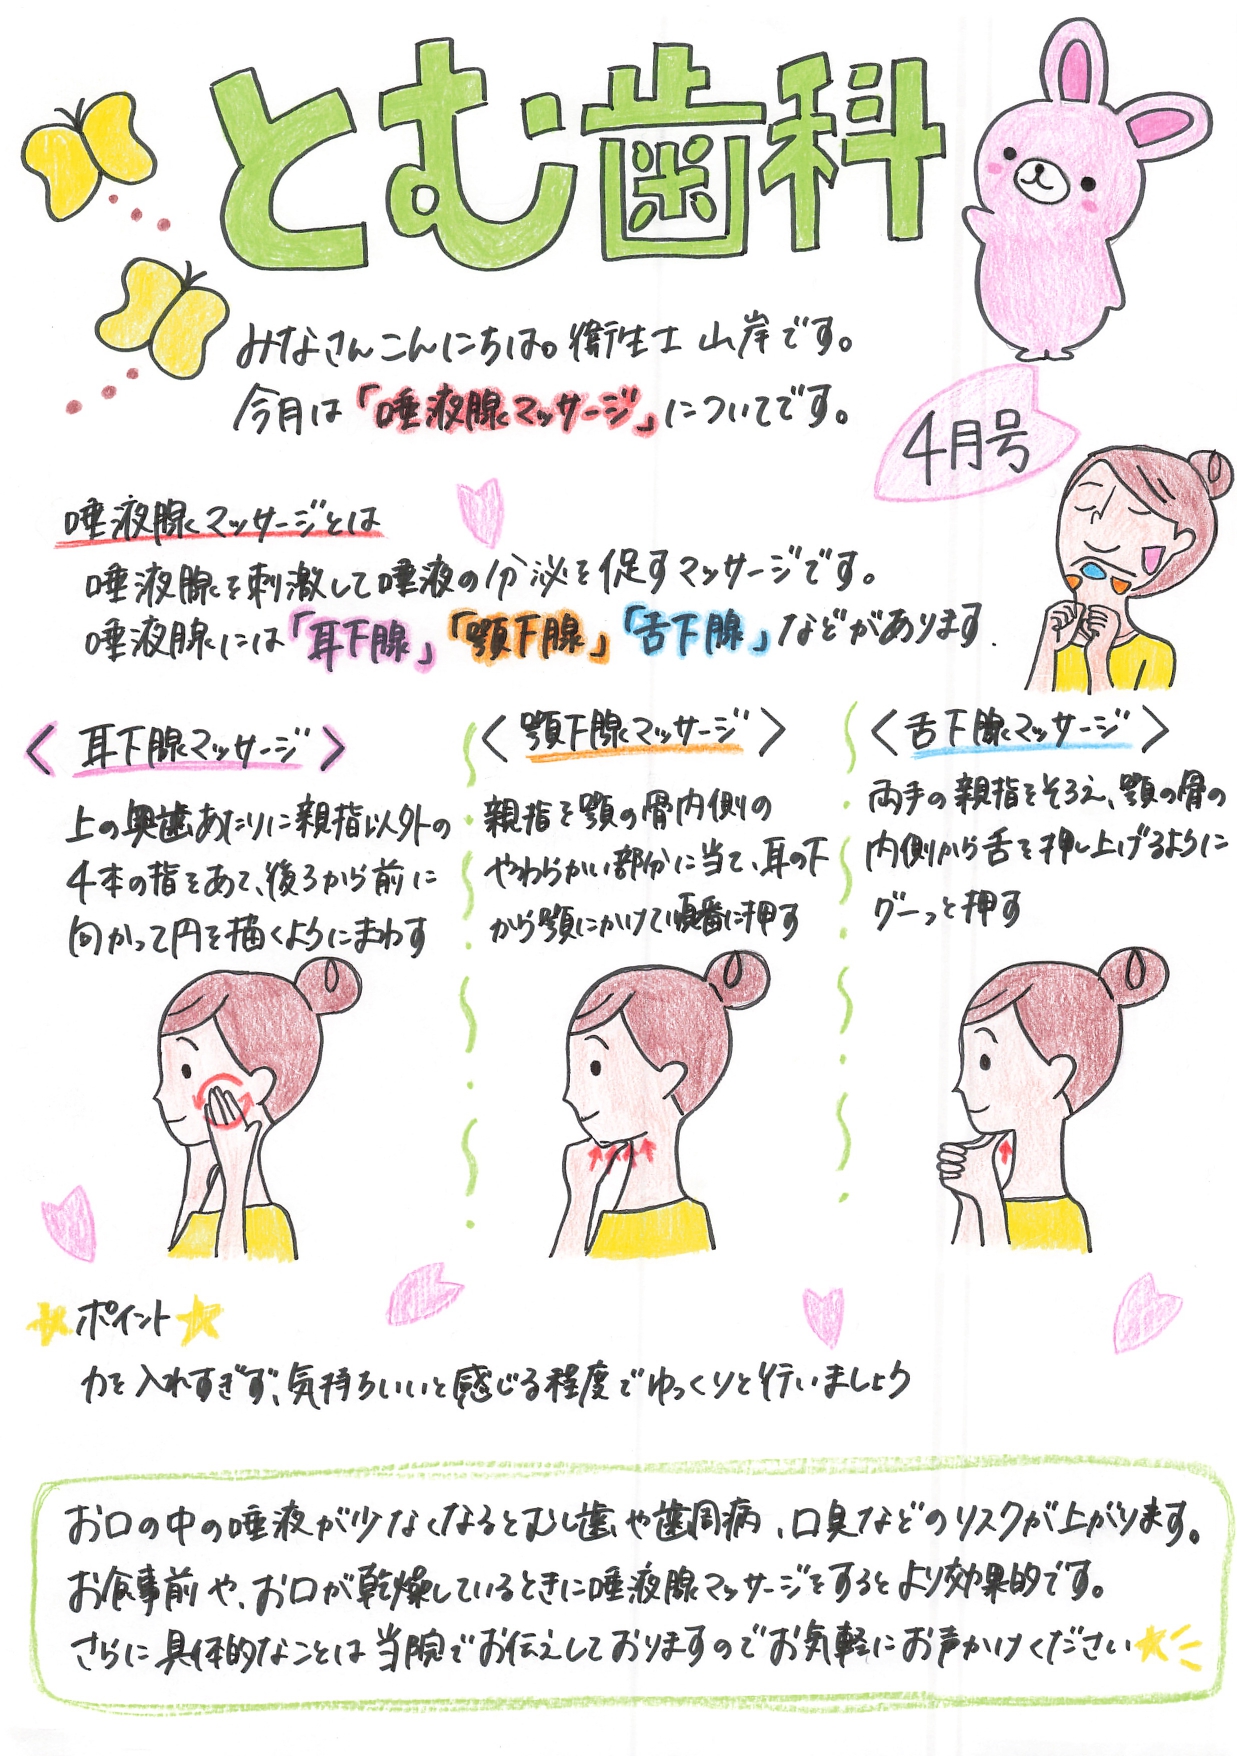 とむ歯科
みなさんこんにちは。衛生士 山岸です。
今月は「唾液腺マッサージ」についてです。
4月号
唾液腺マッサージとは
唾液腺を刺激して唾液の分泌を促すマッサージです。
唾液腺には「耳下腺」「顎下腺」「舌下腺」などがあります.
〈耳下腺マッサージ〉
上の奥歯あたりに親指以外の
4本の指をあて、後ろから前に
向かって円を描くようにまわす
〈顎下腺マッサージ〉
親指を顎の骨内側の
やわらかい部分に当て、耳の下
から顎にかけて順番に押す
〈舌下腺マッサージ〉
両手の親指をそろえ、顎の骨の
内側から舌を押し上げるように
グーっと押す
★ポイント★
力を入れすぎず、気持ちいいと感じる程度でゆっくりと行いましょう
お口の中の唾液が少なくなるとむし歯や歯周病、口臭などのリスクが上がります。
お食事前や、お口が乾燥しているときに唾液腺マッサージをするとより効果的です。
さらに具体的なことは当院でお伝えしておりますのでお気軽にお声かけください★